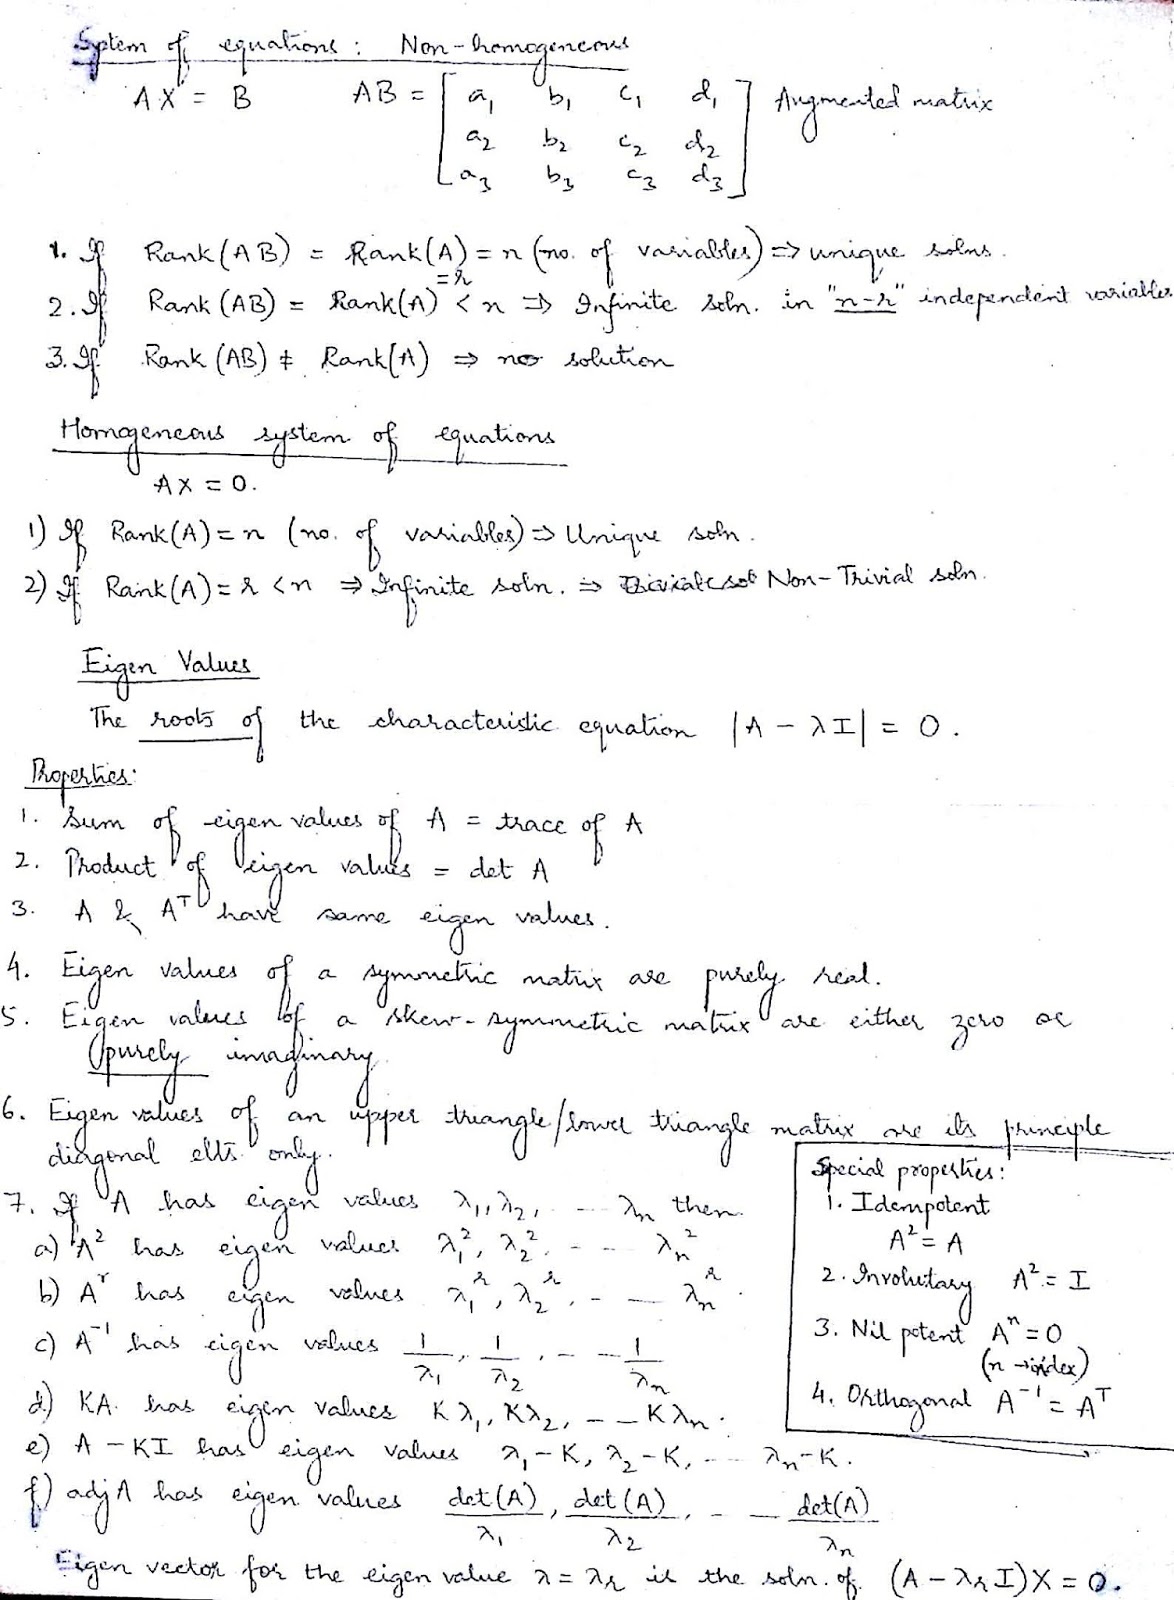 System of equations : Non-homogeneous
AX = B AB = [ a₁ b₁ c₁ d₁ ] Augmented matrix
a₂ b₂ c₂ d₂
a₃ b₃ c₃ d₃
1. If Rank(AB) = Rank(A) = n (no. of variables) ⇒ unique solns.
2. If Rank(AB) = Rank(A) = r < n ⇒ Infinite soln. in "n-r" independent variables
3. If Rank(AB) ≠ Rank(A) ⇒ no solution
Homogeneous system of equations
AX = 0.
1) If Rank(A) = n (no. of variables) ⇒ Unique soln.
2) If Rank(A) = r < n ⇒ Infinite soln. ⇒ Non-Trivial soln.
Eigen Values
The roots of the characteristic equation |A - λI| = 0.
Properties:
1. Sum of eigen values of A = trace of A
2. Product of eigen values = det A
3. A & Aᵀ have same eigen values.
4. Eigen values of a symmetric matrix are purely real.
5. Eigen values of a skew-symmetric matrix are either zero or
purely imaginary.
6. Eigen values of an upper triangle/lower triangle matrix are its principle
diagonal elts. only.
7. If A has eigen values λ₁, λ₂, --- λn then
a) A² has eigen values λ₁², λ₂², --- λn²
b) Aʳ has eigen values λ₁ʳ, λ₂ʳ, --- λnʳ.
c) A⁻¹ has eigen values 1/λ₁, 1/λ₂, --- 1/λn
d) KA has eigen values Kλ₁, Kλ₂, --- Kλn.
e) A - KI has eigen values λ₁-K, λ₂-K, --- λn-K.
f) adj A has eigen values det(A)/λ₁, det(A)/λ₂, --- det(A)/λn
Eigen vector for the eigen value λ = λr is the soln. of (A - λrI)X = 0.
Special properties:
1. Idempotent
A² = A
2. Involutary A² = I
3. Nil potent Aⁿ = 0
(n → index)
4. Orthogonal A⁻¹ = Aᵀ